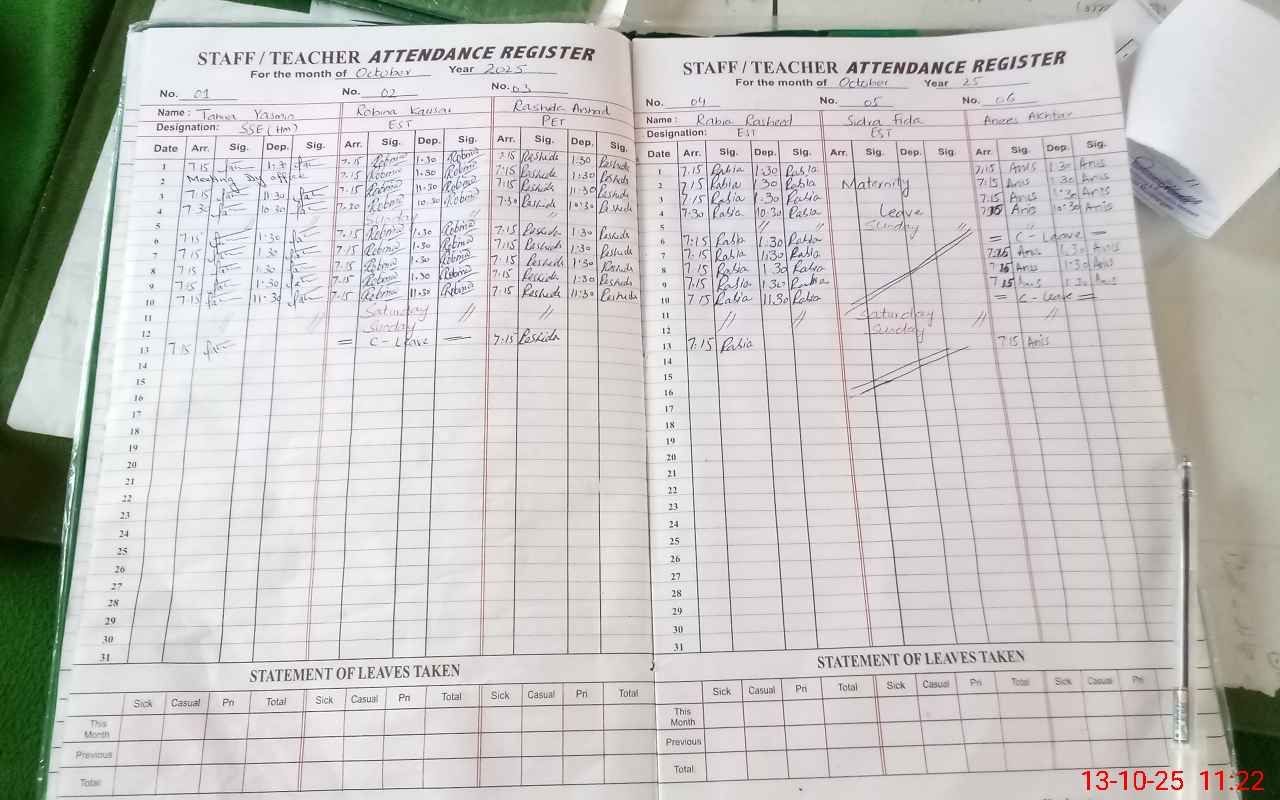 STAFF / TEACHER ATTENDANCE REGISTER
For the month of October Year 2025
No. 01 No. 02 No. 03
Name : Tahira Yasmin Robina Kausar Rashida Arshad
Designation: SSE (Hm) EST PET
Date Arr. Sig. Dep. Sig. Arr. Sig. Dep. Sig. Arr. Sig. Dep. Sig.
1 7.15 1:30 7:15 Robina 1:30 Robina 7:15 Rashida 1:30 Rashida
2 Meeting Dy office 7:15 Robina 1:30 Robina 7:15 Rashida 1:30 Rashida
3 7.15 11.30 7:15 Robina 11:30 Robina 7:15 Rashida 11:30 Rashida
4 7.30 10.30 7:30 Robina 10:30 Robina 7:30 Rashida 10:30 Rashida
5 Sunday // //
6 7:15 1:30 7:15 Robina 1:30 Robina 7:15 Rashida 1:30 Rashida
7 7:15 1:30 7:15 Robina 1:30 Robina 7:15 Rashida 1:30 Rashida
8 7:15 1:30 7:15 Robina 1:30 Robina 7:15 Rashida 1:30 Rashida
9 7:15 1:30 7:15 Robina 1:30 Robina 7:15 Rashida 1:30 Rashida
10 7.15 11:30 7:15 Robina 11:30 Robina 7:15 Rashida 11:30 Rashida
11 // // Saturday // //
12 Sunday
13 7:15 = C - Leave = 7:15 Rashida
14
15
16
17
18
19
20
21
22
23
24
25
26
27
28
29
30
31
STATEMENT OF LEAVES TAKEN
Sick Casual Pri Total Sick Casual Pri Total Sick Casual Pri Total
This Month
Previous
Total
STAFF / TEACHER ATTENDANCE REGISTER
For the month of October Year 25
No. 04 No. 05 No. 06
Name : Rabia Rasheed Sidra Fida Anees Akhtar
Designation: EST EST
Date Arr. Sig. Dep. Sig. Arr. Sig. Dep. Sig. Arr. Sig. Dep. Sig.
1 7.15 Rabia 1:30 Rabia 7:15 Anis 1:30 Anis
2 7.15 Rabia 1:30 Rabia Maternity 7:15 Anis 1:30 Anis
3 7:15 Rabia 1:30 Rabia 7:15 Anis 1:30 Anis
4 7:30 Rabia 10:30 Rabia Leave 7:15 Anis 10:30 Anis
5 // // Sunday // //
6 7:15 Rabia 1:30 Rabia = C - Leave =
7 7.15 Rabia 1:30 Rabia 7:15 Anis 1:30 Anis
8 7.15 Rabia 1:30 Rabia 7:15 Anis 1:30 Anis
9 7.15 Rabia 1:30 Rabia 7:15 Anis 1:30 Anis
10 7.15 Rabia 11.30 Rabia = C - Leave =
11 // // Saturday // //
12 Sunday
13 7:15 Rabia 7:15 Anis
14
15
16
17
18
19
20
21
22
23
24
25
26
27
28
29
30
31
STATEMENT OF LEAVES TAKEN
Sick Casual Pri Total Sick Casual Pri Total Sick Casual Pri
This Month
Previous
Total
13-10-25 11:22